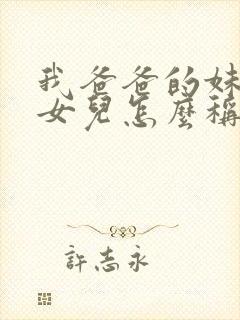 我爸爸的妹
女兒怎麼稱
許志永